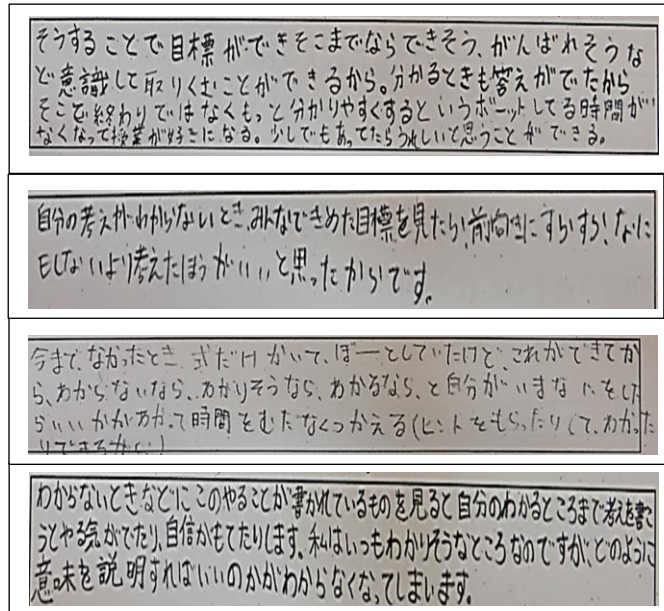 そうすることで目標ができそこまでならできそう、がんばれそうな
ど意識して取りくむことができるから。分かるときも答えがでたから
そこで終わりではなくもっと分かりやすくするというボーットしてる時間が
なくなって授業が好きになる。少しでもあってたらうれしいと思うことができる。
自分の考えがわからないとき、みんなできめた目標を見たら、前向きにすらすら、なに
もしないより考えたほうがいいと思ったからです。
今まで、なかったとき、式だけかいて、ぼーとしていたけど、これができてか
ら、わからないなら、わかりそうなら、わかるなら、と自分がいまなにをした
らいいかがわかって時間をむだなくつかえる(ヒントをもらったりして、わかった
りできるから)
わからないときなどにこのやることが書かれているものを見ると自分のわかるところまで考えを書こ
うとやる気がでたり、自信がもてたりします。私はいつもわかりそうなところなのですが、どのように
意味を説明すればいいのかがわからなくなってしまいます。